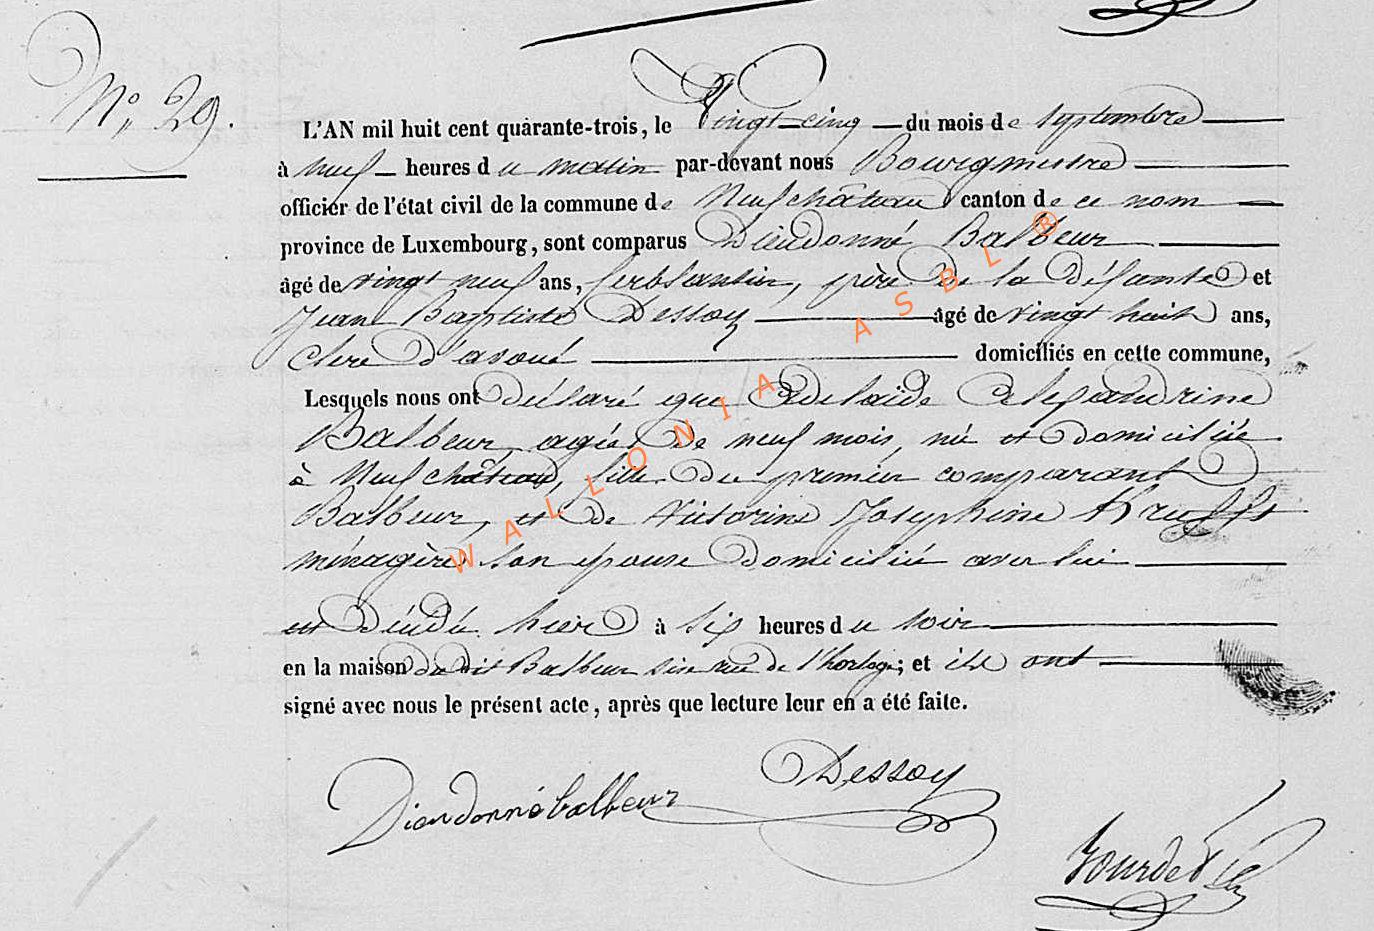 N° 29.
L'AN mil huit cent quarante-trois, le Vingt-cinq du mois de Septembre
à neuf heures du matin par-devant nous Bourgmestre
officier de l'état civil de la commune de Neufchâteau canton de ce nom
province de Luxembourg, sont comparus Dieudonné Balbeur
âgé de vingt neuf ans, ferblantier, père de la défunte et
Jean Baptiste Dessoy âgé de vingt huit ans,
clerc d'avoué domiciliés en cette commune,
Lesquels nous ont déclaré que Adelaïde Alexandrine
Balbeur, agée de neuf mois, née et domiciliée
à Neufchâteau, fille du premier comparant
Balbeur, et de Victorine Josephine
ménagère son épouse domiciliée avec lui
est décédée hier à six heures du soir
en la maison du dit Balbeur sise rue de l'horloge; et ils ont
signé avec nous le présent acte, après que lecture leur en a été faite.
Dessoy
Dieudonné balbeur
WALLONIA ASBL ®